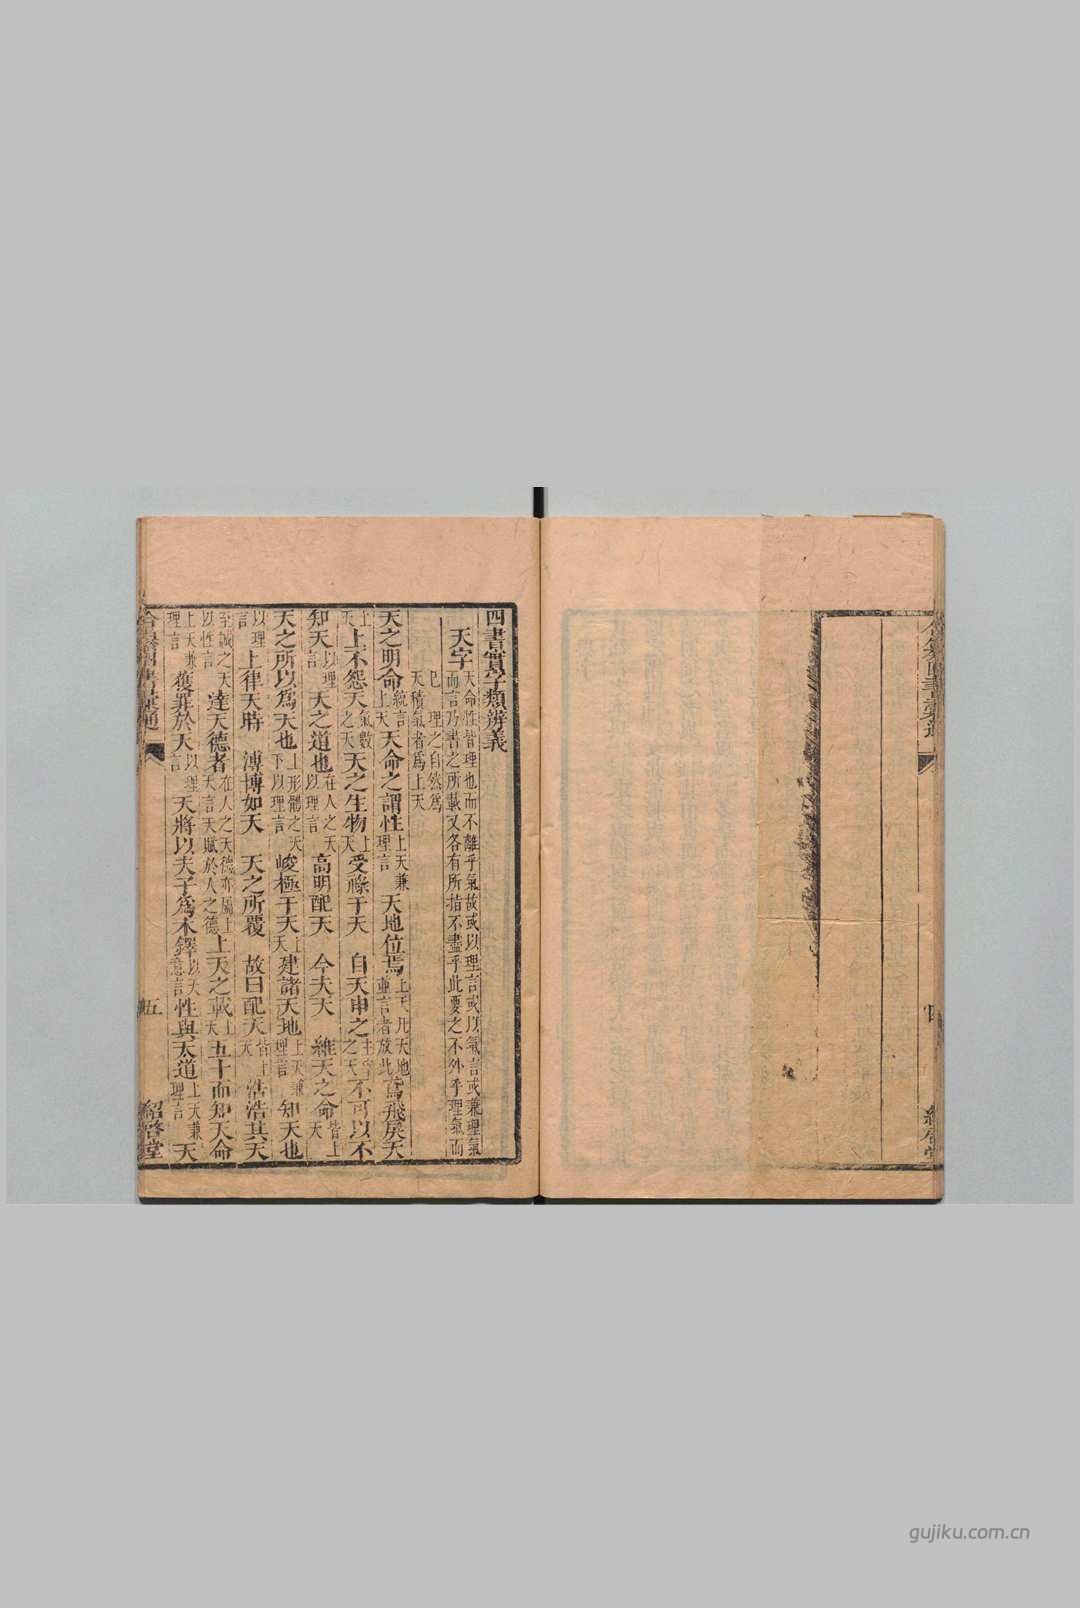 四書實字類辨義
天字 天命性皆理也而不離乎氣故或以理言或以氣言或兼理氣
而言乃書之所載又各有所指不盡乎此要之不外乎理氣而
已 理之自然爲
天積氣者爲上天
天之明命 統言上天 天命之謂性 上天兼理言 天地位焉 上天凡天地並言者放此 鳶飛戾天
上天 上不怨天 氣數之天 天之生物 上天 受祿于天 自天申之 主宰之天 不可以不
知天 以理言 天之道也 在人之天以理言 高明配天 今夫天 維天之命 皆上天
天之所以爲天也 上形體之天下以理言 峻極于天 上天 建諸天地 上天兼理言 知天也
以理言 上律天時 溥博如天 天之所覆 故曰配天 皆上天 浩浩其天
至誠之天以性言 達天德者 在人之天德亦屬上天言天賦於人之德 上天之載 上天 五十而知天命
上天兼理言 獲罪於天 以理言 天將以夫子爲木鐸 以天意言 性與天道 上天兼理言 天
五
紹啓堂
gujiku.com.cn